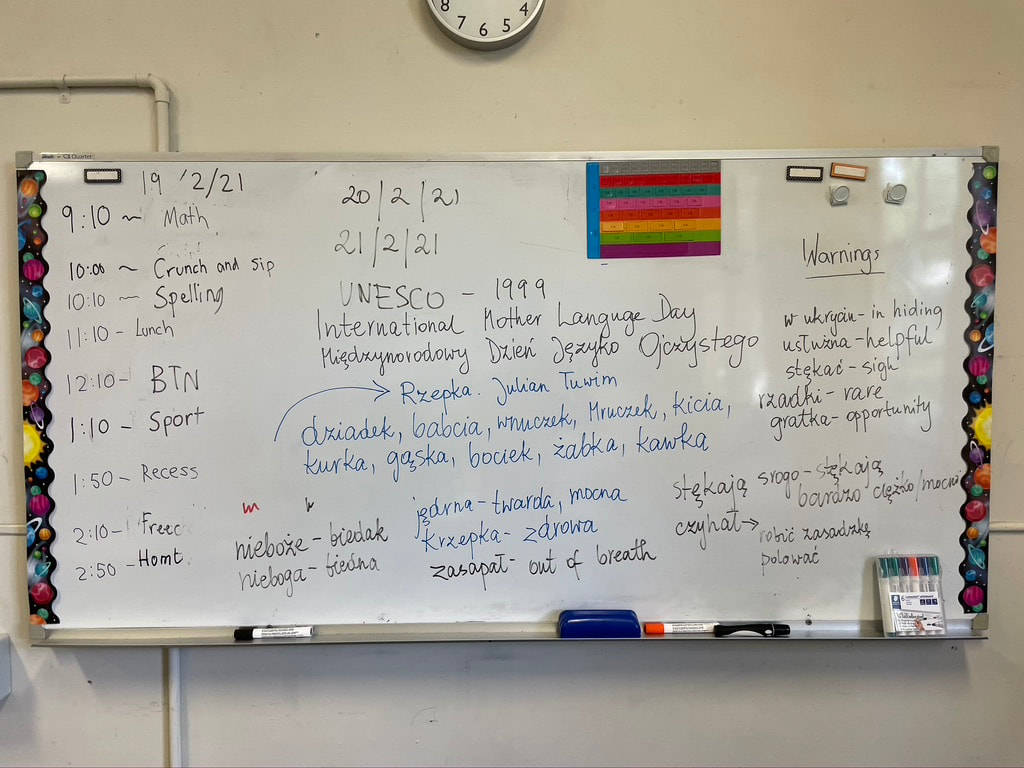 8 7 6 5 4
Quartet
19 '2/21
9:10 ~ Math
10:00 ~ Crunch and Sip
10:10 ~ Spelling
11:10 - Lunch
12:10 - BTN
1:10 - Sport
1:50 - Recess
2:10 - Freec
2:50 - Homt
20/2/21
21/2/21
UNESCO - 1999
International Mother Languge Day
Międzynorodowy Dzień Języko Ojczystego
Rzepka. Julian Tuwim
dziadek, babcia, wnuczek, Mruczek, kicia,
kurka, gąska, bociek, żabka, kawka
m
nieboże - biedak
nieboga - biedna
jędrna - twarda, mocna
krzepka - zdrowa
zasapał - out of breath
Warnings
w ukryciu - in hiding
usłużna - helpful
stękać - sigh
rzadki - rare
gratka - opportunity
stękają srogo - stękają
bardzo ciężko/mocno
czyhał → robić zasadzkę
polować